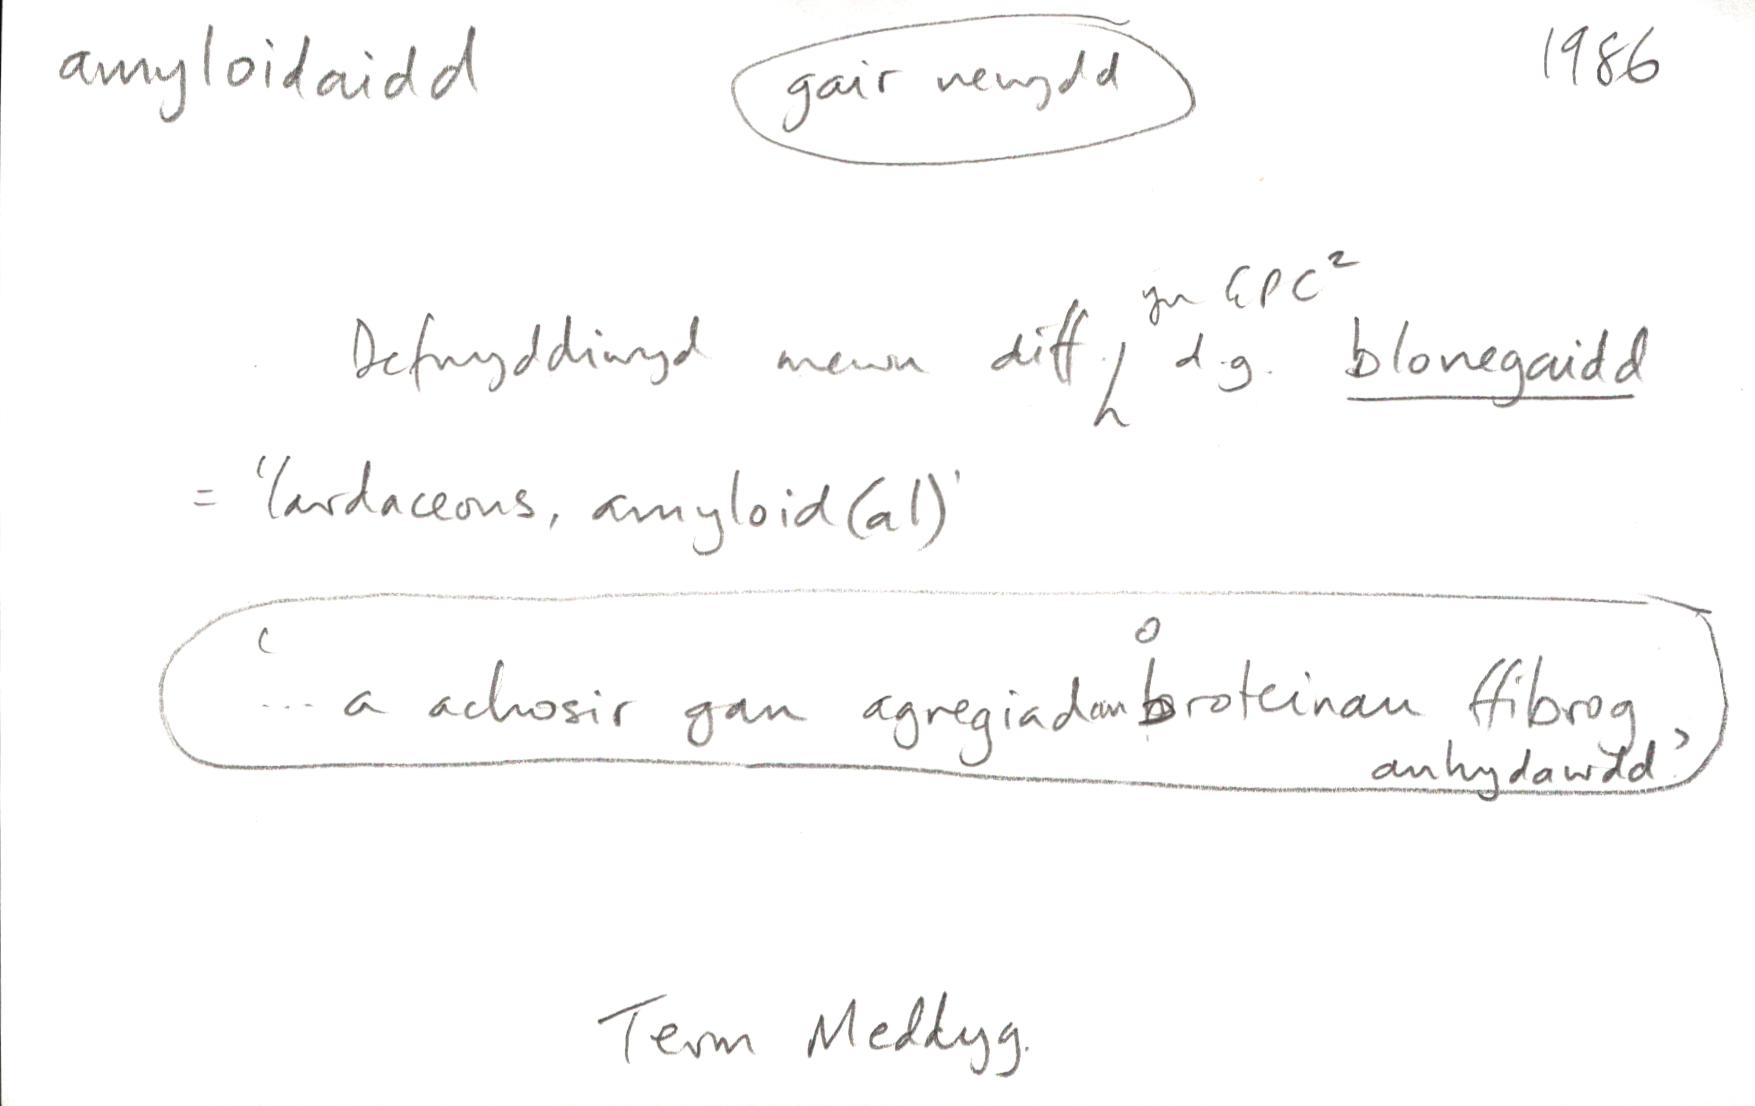 amyloidaidd gair newydd 1986
yn GPC²
Defnyddiwyd mewn diff. d.g. blonegaidd
= 'lardaceous, amyloid(al)'
o
'... a achosir gan agregiadau broteinau ffibrog
anhydawdd'
Term Meddyg.